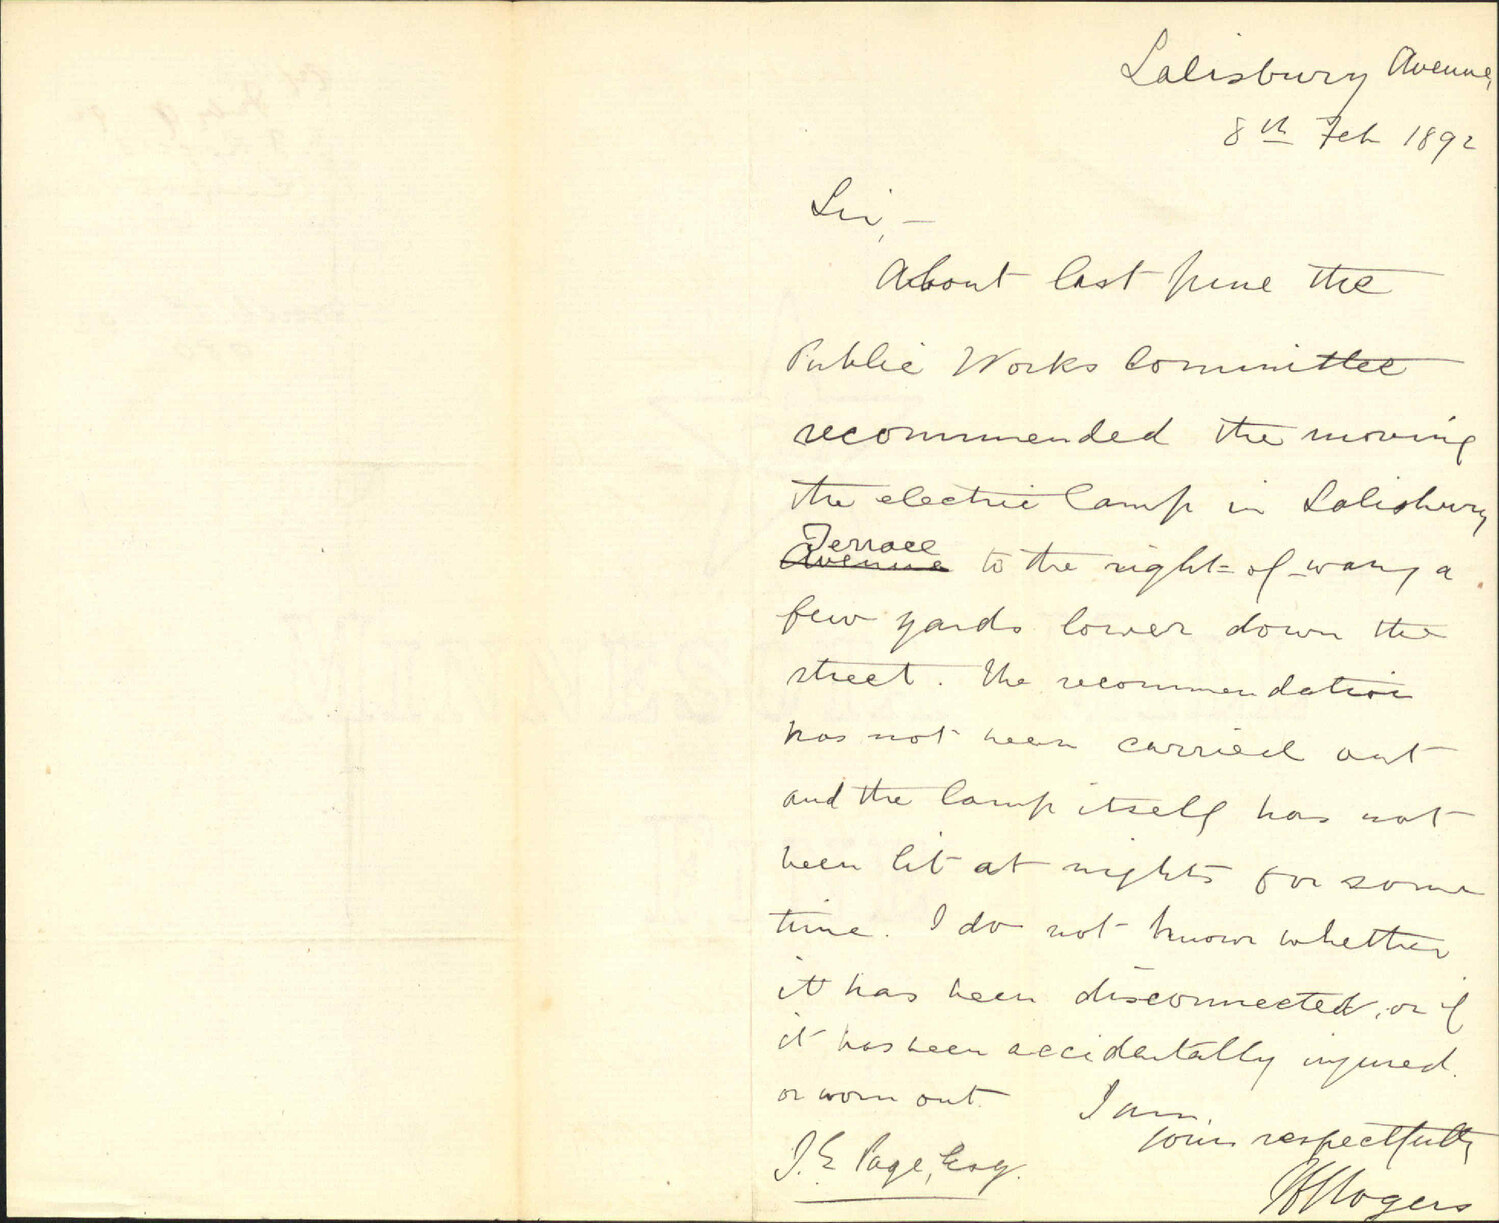 Salisbury Avenue,
8th Feb 1892
Sir,—
About last June the
Public Works Committee
recommended the moving
the electric lamp in Salisbury
Terrace
Avenue to the right=of-way a
few yards lower down the
street. The recommendation
has not been carried out
and the lamp itself has not
been lit at nights for some
time. I do not know whether
it has been disconnected, or if
it has been accidentally injured
or worn out. I am,
yours respectfully
J. E. Page, Esq.
Rogers